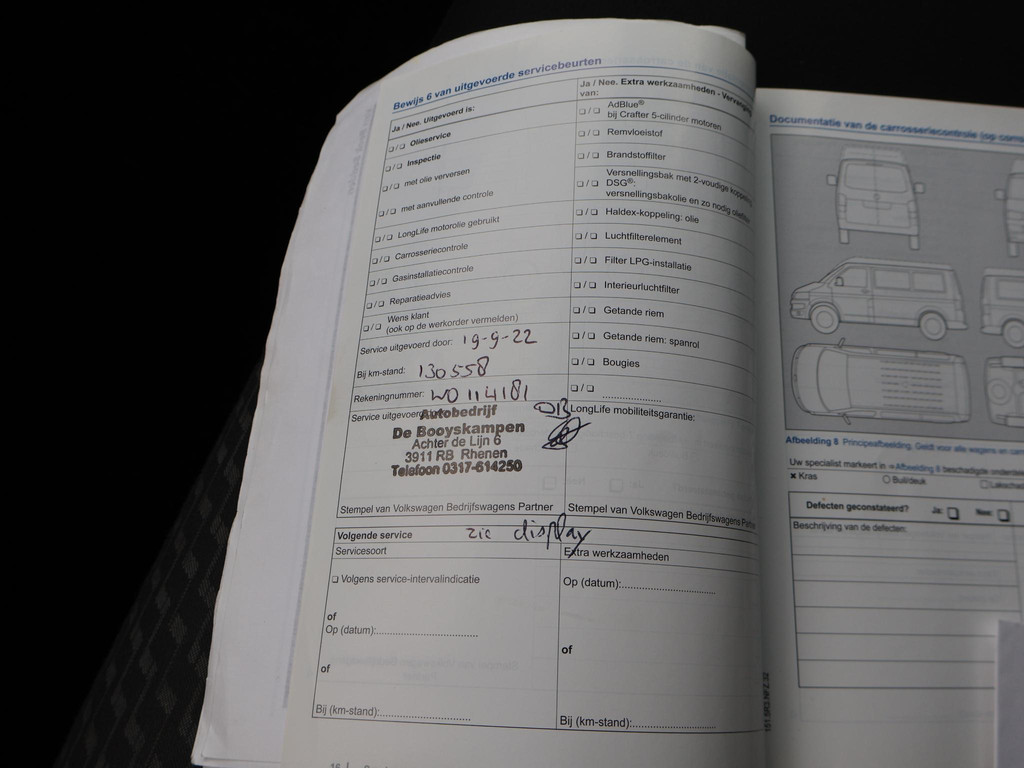 Bewijs 6 van uitgevoerde servicebeurten
Ja / Nee. Uitgevoerd is:
❑/❑ Olieservice
❑/❑ Inspectie
❑/❑ met olie verversen
❑/❑ met aanvullende controle
❑/❑ LongLife motorolie gebruikt
❑/❑ Carrosseriecontrole
❑/❑ Gasinstallatiecontrole
❑/❑ Reparatieadvies
❑/❑ Wens klant
(ook op de werkorder vermelden)
Service uitgevoerd door: 19-9-22
Bij km-stand: 130558
Rekeningnummer: WO114181
Service uitgevoerd
Autobedrijf
De Booyskampen
Achter de Lijn 6
3911 RB Rhenen
Telefoon 0317-614250
Stempel van Volkswagen Bedrijfswagens Partner
Ja / Nee. Extra werkzaamheden - Vervanging
van:
❑/❑ AdBlue®
bij Crafter 5-cilinder motoren
❑/❑ Remvloeistof
❑/❑ Brandstoffilter
Versnellingsbak met 2-voudige koppeling
❑/❑ DSG®:
versnellingsbakolie en zo nodig oliefilter
❑/❑ Haldex-koppeling: olie
❑/❑ Luchtfilterelement
❑/❑ Filter LPG-installatie
❑/❑ Interieurluchtfilter
❑/❑ Getande riem
❑/❑ Getande riem: spanrol
❑/❑ Bougies
❑/❑ ......................
LongLife mobiliteitsgarantie:
Stempel van Volkswagen Bedrijfswagens Partner
Volgende service zie display
Servicesoort
❑ Volgens service-intervalindicatie
of
Op (datum):..................................
of
Bij (km-stand):..............................
Extra werkzaamheden
Op (datum):................................
of
Bij (km-stand):............................
Documentatie van de carrosseriecontrole
Afbeelding 8 Principeafbeelding. Geldt voor alle wagens en
Uw specialist markeert in ⇒Afbeelding 8 beschadigde
× Kras ○ Buil/deuk
Defecten geconstateerd? Ja: ❑ Nee: ❑
Beschrijving van de defecten: